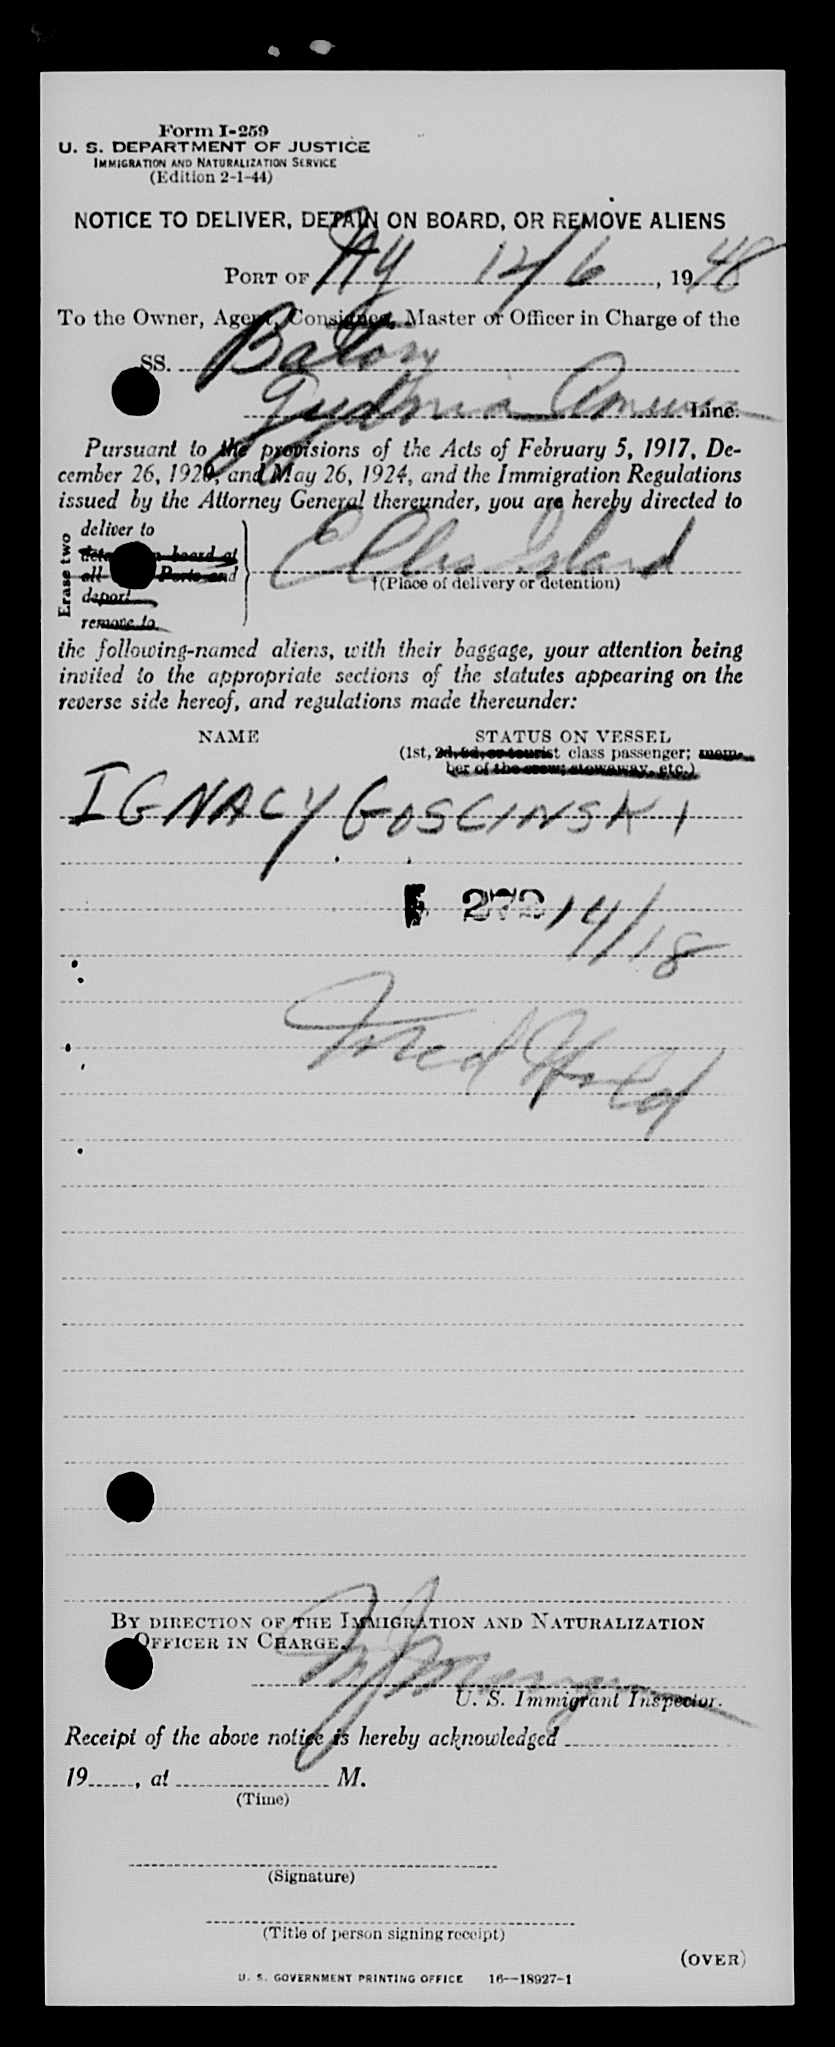 Form I-259
U. S. DEPARTMENT OF JUSTICE
IMMIGRATION AND NATURALIZATION SERVICE
(Edition 2-1-44)
NOTICE TO DELIVER, DETAIN ON BOARD, OR REMOVE ALIENS
PORT OF NY 12/6, 1948
To the Owner, Agent, Consignee, Master or Officer in Charge of the
SS. Batory
Gydnia America Line.
Pursuant to the provisions of the Acts of February 5, 1917, De-
cember 26, 1920, and May 26, 1924, and the Immigration Regulations
issued by the Attorney General thereunder, you are hereby directed to
Erase two
deliver to
on board at
all Ports and
deport
remove to
Ellis Island
†(Place of delivery or detention)
the following-named aliens, with their baggage, your attention being
invited to the appropriate sections of the statutes appearing on the
reverse side hereof, and regulations made thereunder:
NAME STATUS ON VESSEL
(1st, 2d, 3d, or tourist class passenger; mem-
ber of the crew; stowaway, etc.)
IGNACY GOSCINSKI
272 14/18
Med Hold
BY DIRECTION OF THE IMMIGRATION AND NATURALIZATION
OFFICER IN CHARGE.
U. S. Immigrant Inspector.
Receipt of the above notice is hereby acknowledged
19, at M.
(Time)
(Signature)
(Title of person signing receipt)
(OVER)
U. S. GOVERNMENT PRINTING OFFICE 16—18927-1